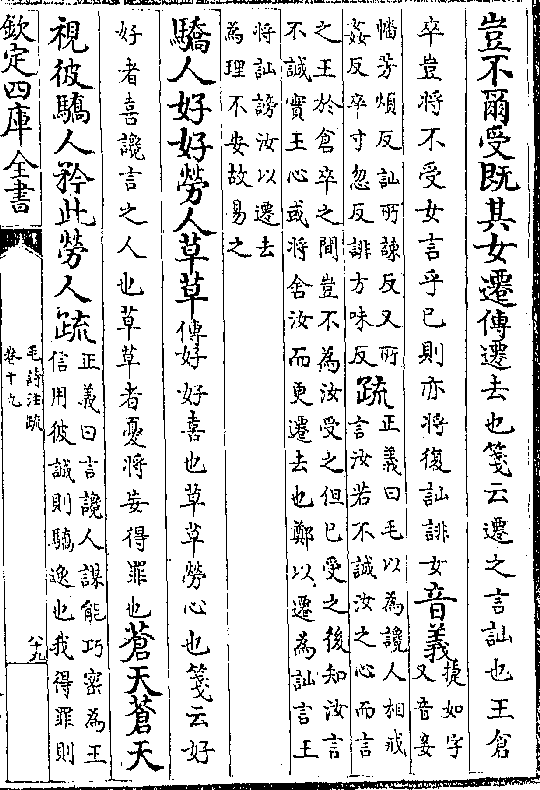 豈不爾受既其女遷傳遷去也箋云遷之言訕也王倉
卒豈將不受女言乎已則亦將復訕誹女音義捷如字
又音妾
幡芳煩反訕所諫反又所
姦反卒寸忽反誹方味反疏正義曰毛以為讒人相戒
言汝若不誠汝之心而言
之王於倉卒之間豈不為汝受之但已受之後知汝言
不誠實王心或將舍汝而更遷去也鄭以遷為訕言王
將訕謗汝以遷去
為理不安故易之
驕人好好勞人草草傳好好喜也草草勞心也箋云好
好者喜讒言之人也草草者憂將妄得罪也蒼天蒼天
視彼驕人矜此勞人疏正義曰言讒人謀能巧密為王
信用彼誠則驕逸也我得罪則
欽定四庫全書
毛詩注疏
卷十九
八十九